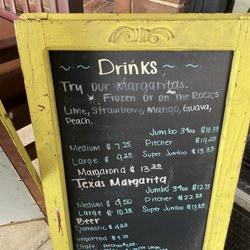 ~ Drinks ~
Try Our Margaritas.
Frozen Or on The Rocks
Lime, Strawberry, Mango, Guava,
Peach,
Jumbo 34oz $10.75
Medium $7.35 Pitcher $19.25
Large $9.25 Super Jumbo $13.25
Margarona $13.25
Texas Margarita
Jumbo 34oz $12.75
Medium $8.50 Pitcher $22.25
Large $10.25 Super Jumbo $17.25
Beer
Domestic $4.25
Imported $4.95